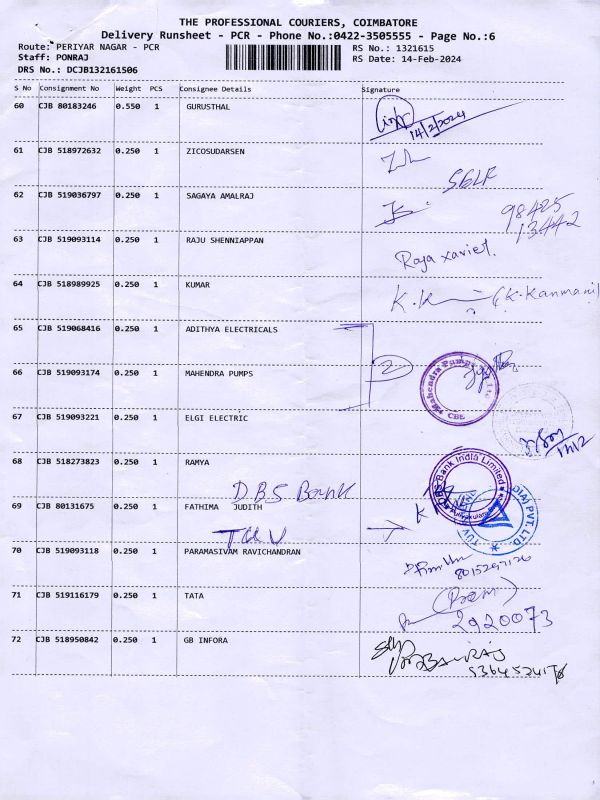 THE PROFESSIONAL COURIERS, COIMBATORE
Delivery Runsheet - PCR - Phone No.:0422-3505555 - Page No.:6
Route: PERIYAR NAGAR - PCR
RS No.: 1321615
Staff: PONRAJ
RS Date: 14-Feb-2024
DRS No.: DCJB132161506
S No Consignment No Weight PCS Consignee Details Signature
60 CJB 80183246 0.550 1 GURUSTHAL
14/2/2024
61 CJB 518972632 0.250 1 ZICOSUDARSEN
SELF
62 CJB 519036797 0.250 1 SAGAYA AMALRAJ
98425
13442
63 CJB 519093114 0.250 1 RAJU SHENNIAPPAN
Raja xavier.
64 CJB 518989925 0.250 1 KUMAR
(K.Kanmani)
65 CJB 519068416 0.250 1 ADITHYA ELECTRICALS
66 CJB 519093174 0.250 1 MAHENDRA PUMPS
2
Mahendra Pumps
CBE
67 CJB 519093221 0.250 1 ELGI ELECTRIC
68 CJB 518273823 0.250 1 RAMYA
DBS Bank India Limited
D.B.S Bank
69 CJB 80131675 0.250 1 FATHIMA JUDITH
TUV
(INDIA) PVT. LTD.
70 CJB 519093118 0.250 1 PARAMASIVAM RAVICHANDRAN
8015297126
71 CJB 519116179 0.250 1 TATA
(Prem)
2920073
72 CJB 518950842 0.250 1 GB INFORA